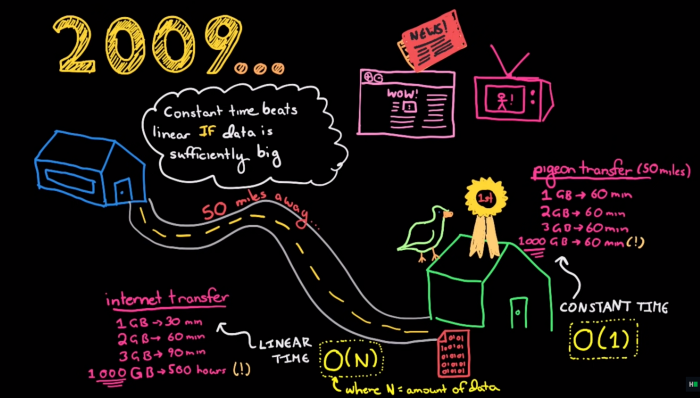 2009...
NEWS!
WOW!
!
!
Constant time beats
linear IF data is
sufficiently big
50 miles away...
pigeon transfer (50 miles)
1 GB → 60 min
2GB → 60 min
3 GB → 60 min
1000 GB → 60 min (!)
1st
CONSTANT TIME
O(1)
internet transfer
1 GB → 30 min
2 GB → 60 min
3 GB → 90 min
1000 GB → 500 hours (!)
LINEAR
TIME
O(N)
where N = amount of data
H